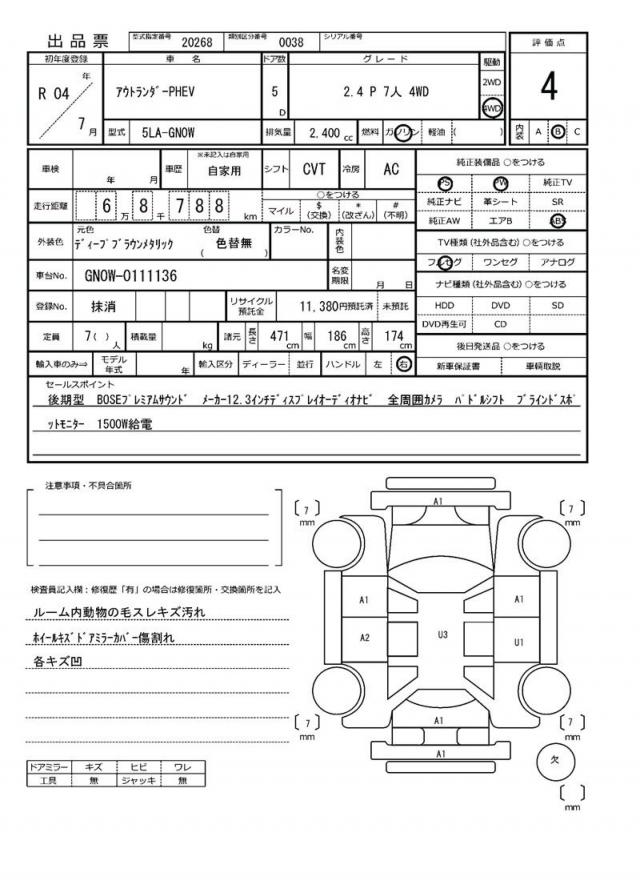 出品票
型式指定番号 20268 類別区分番号 0038 シリアル番号
評価点
4
初年度登録 車名 ドア数 グレード 駆動
R 04 年 7 月
アウトランダｰPHEV
5 D
2.4 P 7人 4WD
2WD
4WD
型式 5LA-GN0W 排気量 2,400 cc 燃料 ガソリン 軽油 ( )
内装 A B C
車検 年 月 車歴 ※未記入は自家用 自家用 シフト CVT 冷房 AC
走行距離 6 万 8 千 7 8 8 km
○をつける
マイル $(交換) *(改ざん) #(不明)
外装色 元色 ディープブラウンメタリック 色替 ( 色替無 ) カラーNo. 内装色
車台No. GN0W-0111136 名変期限 月 日
登録No. 抹消 リサイクル預託金 11,380円預託済 未預託
定員 7( ) 人 積載量 kg 諸元 長さ 471 cm 幅 186 cm 高さ 174 cm
輸入車のみ⇒ モデル年式 年 輸入区分 ディーラー 並行 ハンドル 左 右
純正装備品 ○をつける
PS PW 純正TV
純正ナビ 革シート SR
純正AW エアB ABS
TV種類 (社外品含む) ○をつける
フルセグ ワンセグ アナログ
ナビ種類 (社外品含む) ○をつける
HDD DVD SD
DVD再生可 CD
後日発送品 ○をつける
新車保証書 車輌取説
セールスポイント
後期型 BOSEプレミアムサウンド メーカー12.3インチディスプレイオーディオナビ 全周囲カメラ パドルシフト ブラインドスポ
ットモニター 1500W給電
注意事項・不具合箇所
検査員記入欄：修復歴「有」の場合は修復箇所・交換箇所を記入
ルーム内動物の毛スレキズ汚れ
ホイールキズ ドアミラーカバー傷割れ
各キズ凹
ドアミラー キズ ヒビ ワレ
工具 無 ジャッキ 無
A1
7 mm
7 mm
A1
A1
A2
U3
U1
A1
7 mm
7 mm
A1
欠
mm